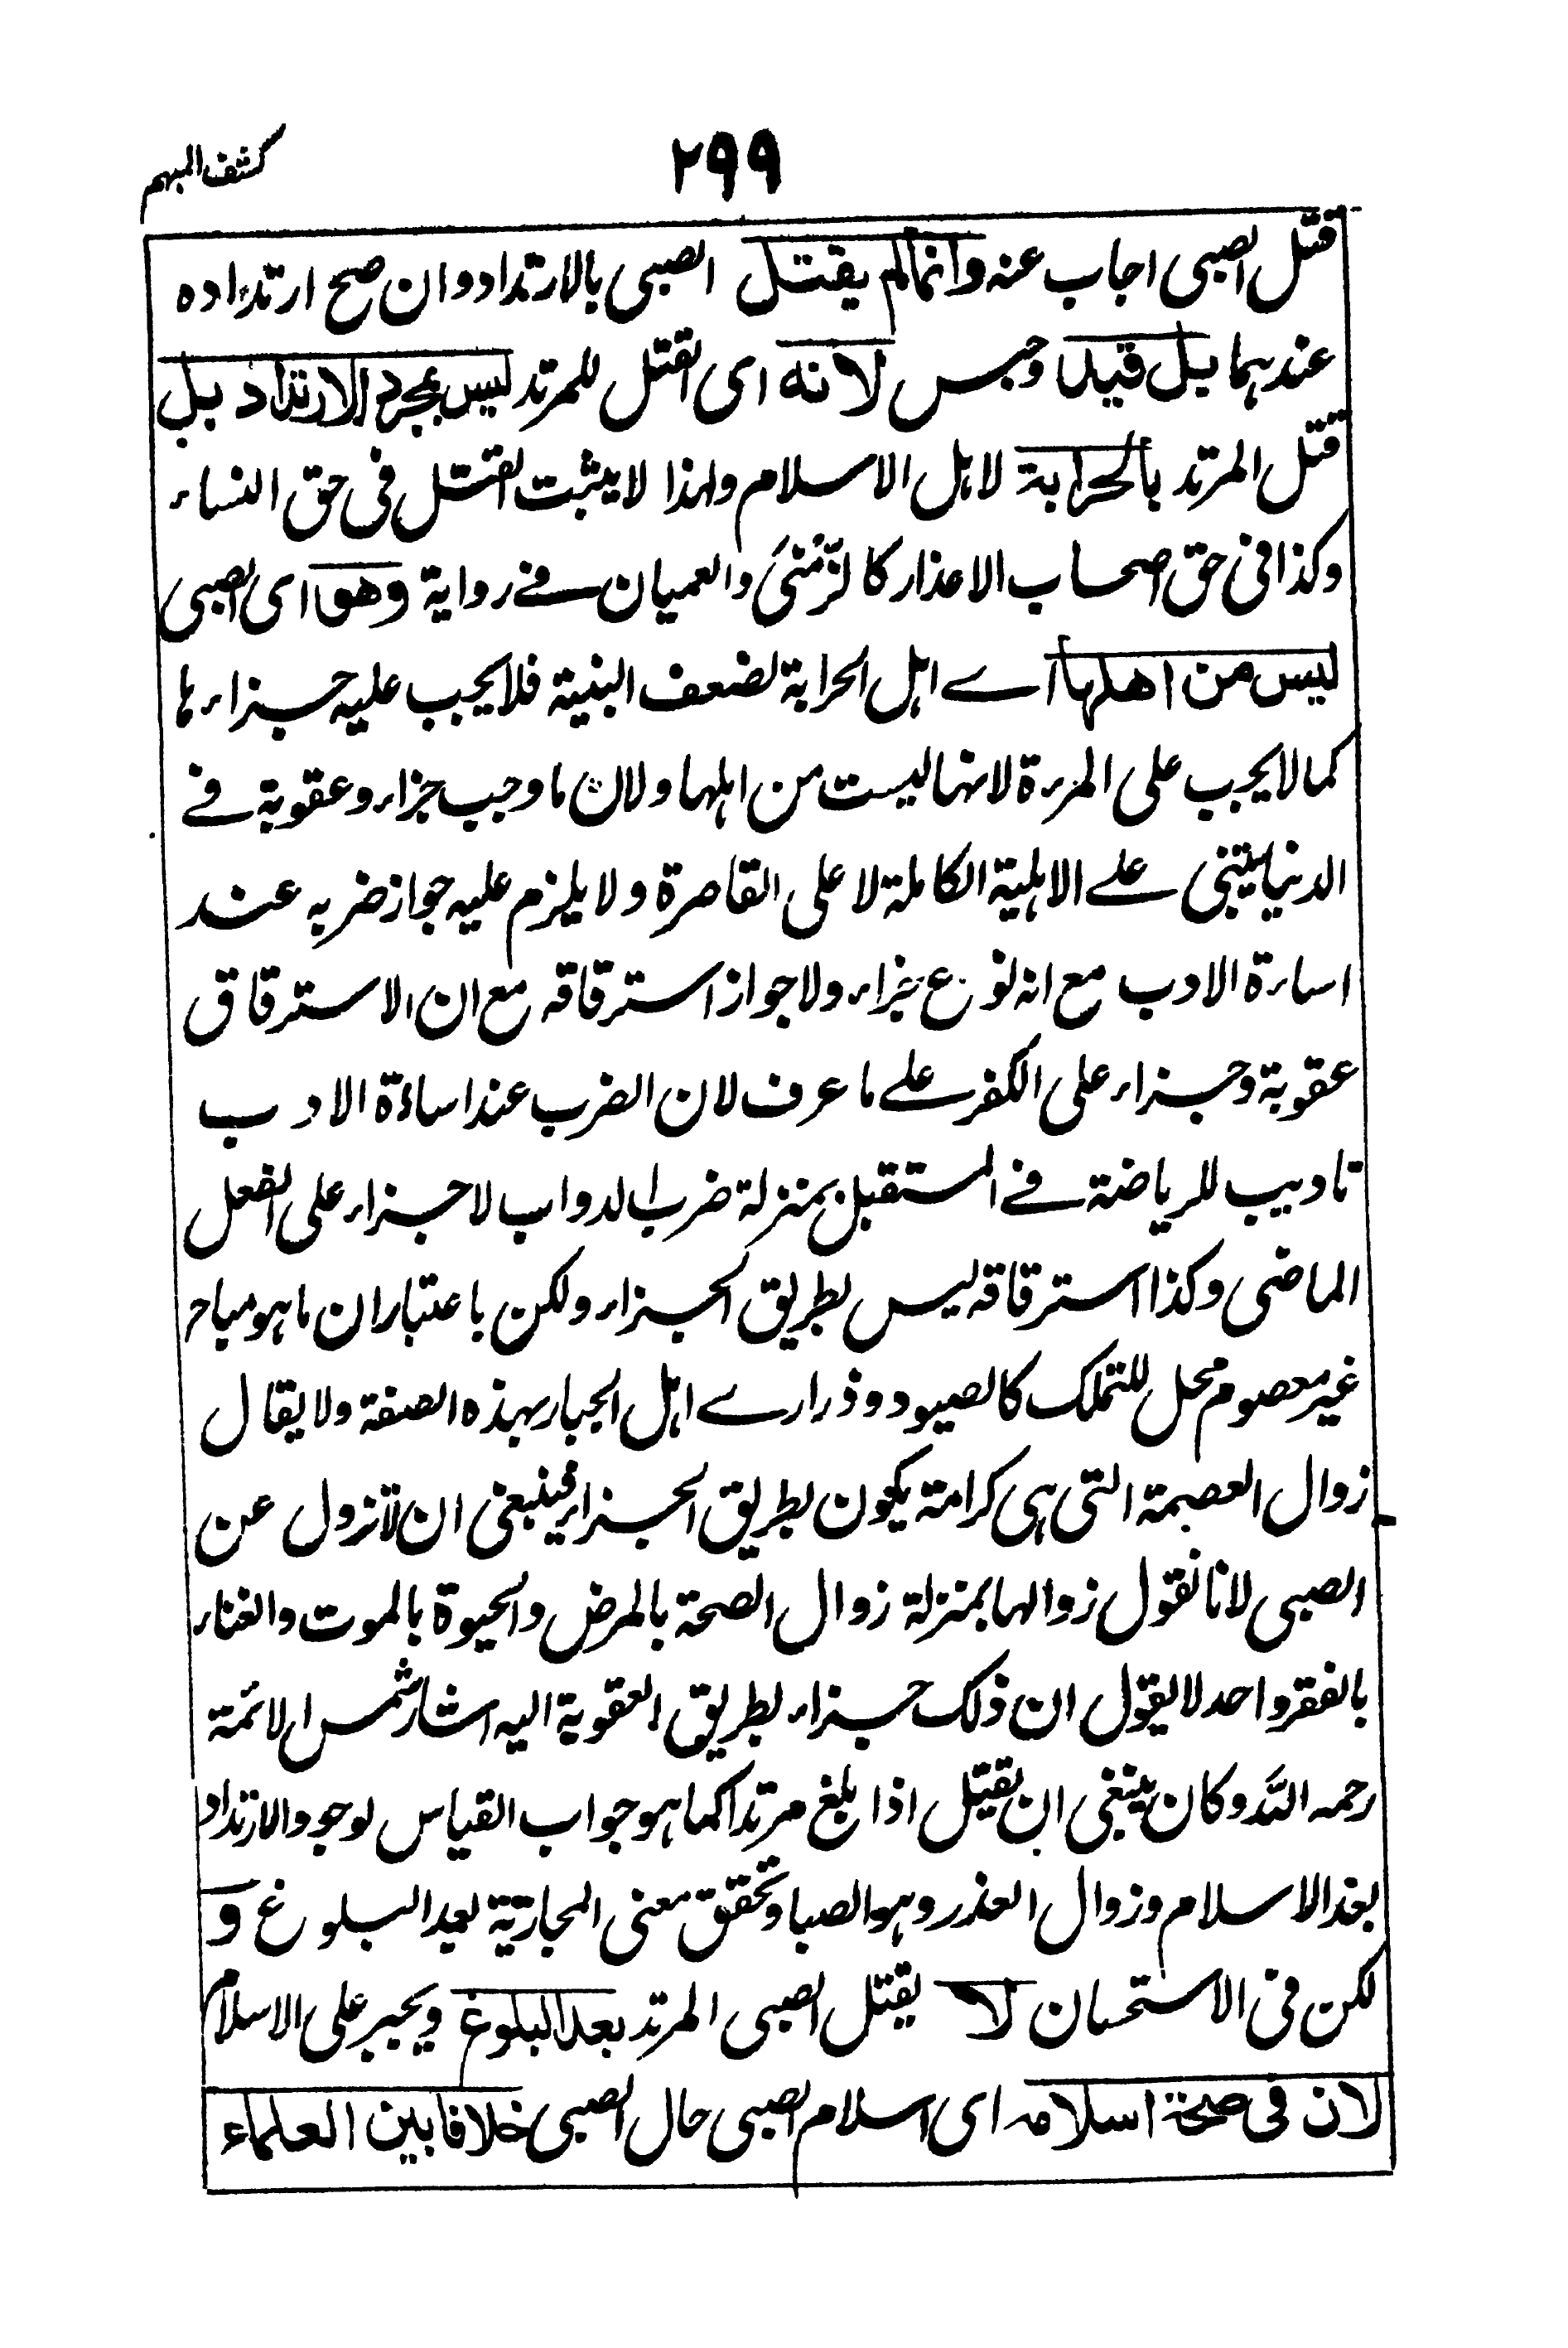 كشف المبهم
٢٩٩
قتل الصبي اجاب عنه وانما لم يقتل الصبي بالارتداد وان صح ارتداده
عندهما بل قيد وحبس لانه اى القتل للمرتد ليس بمجرد الارتداد بل
قتل المرتد بالحرابة لاهل الاسلام ولهذا لا يثبت القتل فى حق النساء
وكذا فى حق اصحاب الاعذار كالزَّمْنىٰ والعميان فى رواية وهو اى الصبى
ليس من اهلها اى اهل الحرابة لضعف البنية فلا يجب عليه جزاءها
كما لا يجب على المرءة لانها ليست من اهلها ولان ما وجب جزاء وعقوبة فى
الدنيا يبتنى على الاهلية الكاملة لا على القاصرة ولا يلزم عليه جواز ضربه عند
اساءة الادب مع انه نوع جزاء ولا جواز استرقاقه مع ان الاسترقاق
عقوبة وجزاء على الكفر على ما عرف لان الضرب عند اساءة الادب
تاديب للرياضة فى المستقبل بمنزلة ضرب الدواب لا جزاء على الفعل
الماضى وكذا استرقاقه ليس بطريق الجزاء ولكن باعتبار ان ما هو مباح
غير معصوم محل للتملك كالصيود وذرارى اهل الجبار بهذه الصفة ولا يقال
زوال العصمة التى هى كرامة يكون بطريق الجزاء فينبغى ان لا تزول عن
الصبى لانا نقول زوالها بمنزلة زوال الصحة بالمرض والحيوة بالموت والغناء
بالفقر واحد لا يقول ان ذلك جزاء بطريق العقوبة اليه اشار شمس الائمة
رحمه الله وكان ينبغى ان يقتل اذا بلغ مرتدا كما هو جواب القياس لوجود الارتداد
بعد الاسلام وزوال العذر وهو الصبا وتحقق معنى المحاربة بعد البلوغ و
لكن فى الاستحسان لا يقتل الصبى المرتد بعد البلوغ ويجبر على الاسلام
لان فى صحة اسلامه اى اسلام الصبى حال الصبى خلافا بين العلماء